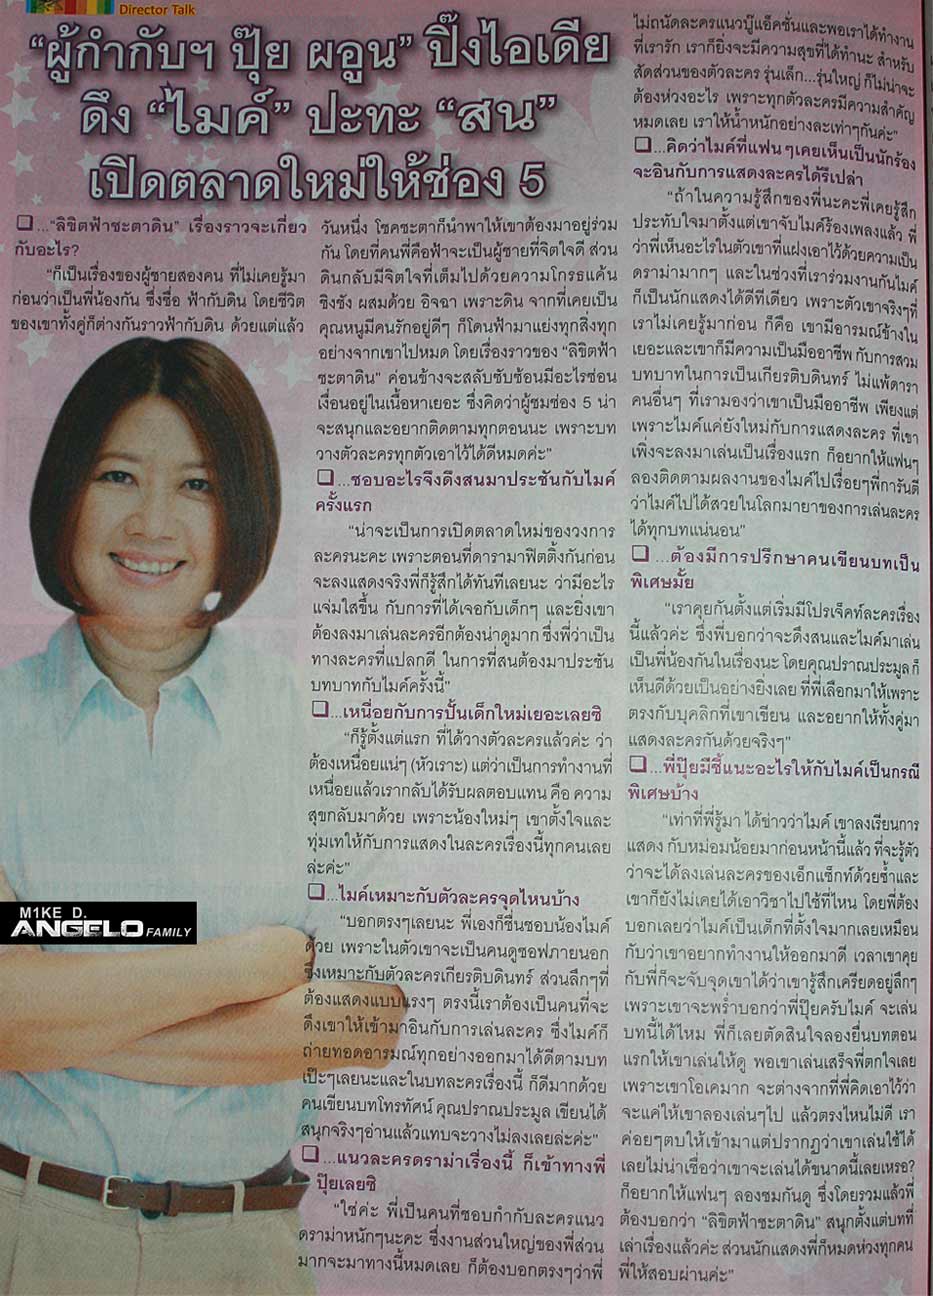 Director Talk
"ผู้กำกับฯ ปุ๊ย ผอูน" ปิ๊งไอเดีย
ดึง "ไมค์" ปะทะ "สน"
เปิดตลาดใหม่ให้ช่อง 5
❑ ..."ลิขิตฟ้าชะตาดิน" เรื่องราวจะเกี่ยว
กับอะไร?
"ก็เป็นเรื่องของผู้ชายสองคน ที่ไม่เคยรู้มา
ก่อนว่าเป็นพี่น้องกัน ซึ่งชื่อ ฟ้ากับดิน โดยชีวิต
ของเขาทั้งคู่ก็ต่างกันราวฟ้ากับดิน ด้วยแต่แล้ว
M1KE D.
ANGELO FAMILY
วันหนึ่ง โชคชะตาก็นำพาให้เขาต้องมาอยู่ร่วม
กัน โดยที่คนพี่คือฟ้าจะเป็นผู้ชายที่จิตใจดี ส่วน
ดินกลับมีจิตใจที่เต็มไปด้วยความโกรธแค้น
ชิงชัง ผสมด้วย อิจฉา เพราะดิน จากที่เคยเป็น
คุณหนูมีคนรักอยู่ดีๆ ก็โดนฟ้ามาแย่งทุกสิ่งทุก
อย่างจากเขาไปหมด โดยเรื่องราวของ "ลิขิตฟ้า
ชะตาดิน" ค่อนข้างจะสลับซับซ้อนมีอะไรซ่อน
เงื่อนอยู่ในเนื้อหาเยอะ ซึ่งคิดว่าผู้ชมช่อง 5 น่า
จะสนุกและอยากติดตามทุกตอนนะ เพราะบท
วางตัวละครทุกตัวเอาไว้ได้ดีหมดค่ะ"
❑ ...ชอบอะไรจึงดึงสนมาประชันกับไมค์
ครั้งแรก
"น่าจะเป็นการเปิดตลาดใหม่ของวงการ
ละครนะคะ เพราะตอนที่ดารามาฟิตติ้งกันก่อน
จะลงแสดงจริงพี่ก็รู้สึกได้ทันทีเลยนะ ว่ามีอะไร
แจ่มใสขึ้น กับการที่ได้เจอกับเด็กๆ และยิ่งเขา
ต้องลงมาเล่นละครอีกต้องน่าดูมาก ซึ่งพี่ว่าเป็น
ทางละครที่แปลกดี ในการที่สนต้องมาประชัน
บทบาทกับไมค์ครั้งนี้"
❑ ...เหนื่อยกับการปั้นเด็กใหม่เยอะเลยซิ
"ก็รู้ตั้งแต่แรก ที่ได้วางตัวละครแล้วค่ะ ว่า
ต้องเหนื่อยแน่ๆ (หัวเราะ) แต่ว่าเป็นการทำงานที่
เหนื่อยแล้วเรากลับได้รับผลตอบแทน คือ ความ
สุขกลับมาด้วย เพราะน้องใหม่ๆ เขาตั้งใจและ
ทุ่มเทให้กับการแสดงในละครเรื่องนี้ทุกคนเลย
ล่ะค่ะ"
❑ ...ไมค์เหมาะกับตัวละครจุดไหนบ้าง
"บอกตรงๆเลยนะ พี่เองก็ชื่นชอบน้องไมค์
ด้วย เพราะในตัวเขาจะเป็นคนดูซอฟภายนอก
ซึ่งเหมาะกับตัวละครเกียรติบดินทร์ ส่วนลึกๆที่
ต้องแสดงแบบแรงๆ ตรงนี้เราต้องเป็นคนที่จะ
ดึงเขาให้เข้ามาอินกับการเล่นละคร ซึ่งไมค์ก็
ถ่ายทอดอารมณ์ทุกอย่างออกมาได้ดีตามบท
เป๊ะๆเลยนะและในบทละครเรื่องนี้ ก็ดีมากด้วย
คนเขียนบทโทรทัศน์ คุณปราณประมูล เขียนได้
สนุกจริงๆอ่านแล้วแทบจะวางไม่ลงเลยล่ะค่ะ"
❑ ...แนวละครดราม่าเรื่องนี้ ก็เข้าทางพี่
ปุ๊ยเลยซิ
"ใช่ค่ะ พี่เป็นคนที่ชอบกำกับละครแนว
ดราม่าหนักๆนะคะ ซึ่งงานส่วนใหญ่ของพี่ส่วน
มากจะมาทางนี้หมดเลย ก็ต้องบอกตรงๆว่าพี่
ไม่ถนัดละครแนวบู๊แอ็คชั่นและพอเราได้ทำงาน
ที่เรารัก เราก็ยิ่งจะมีความสุขที่ได้ทำนะ สำหรับ
สัดส่วนของตัวละคร รุ่นเล็ก...รุ่นใหญ่ ก็ไม่น่าจะ
ต้องห่วงอะไร เพราะทุกตัวละครมีความสำคัญ
หมดเลย เราให้น้ำหนักอย่างละเท่าๆกันค่ะ"
❑ ...คิดว่าไมค์ที่แฟนๆเคยเห็นเป็นนักร้อง
จะอินกับการแสดงละครได้รึเปล่า
"ถ้าในความรู้สึกของพี่นะคะพี่เคยรู้สึก
ประทับใจมาตั้งแต่เขาจับไมค์ร้องเพลงแล้ว พี่
ว่าพี่เห็นอะไรในตัวเขาที่แฝงเอาไว้ด้วยความเป็น
ดราม่ามากๆ และในช่วงที่เราร่วมงานกันไมค์
ก็เป็นนักแสดงได้ดีทีเดียว เพราะตัวเขาจริงๆที่
เราไม่เคยรู้มาก่อน ก็คือ เขามีอารมณ์ข้างใน
เยอะและเขาก็มีความเป็นมืออาชีพ กับการสวม
บทบาทในการเป็นเกียรติบดินทร์ ไม่แพ้ดารา
คนอื่นๆ ที่เรามองว่าเขาเป็นมืออาชีพ เพียงแต่
เพราะไมค์แค่ยังใหม่กับการแสดงละคร ที่เขา
เพิ่งจะลงมาเล่นเป็นเรื่องแรก ก็อยากให้แฟนๆ
ลองติดตามผลงานของไมค์ไปเรื่อยๆพี่การันตี
ว่าไมค์ไปได้สวยในโลกมายาของการเล่นละคร
ได้ทุกบทแน่นอน"
❑ ...ต้องมีการปรึกษาคนเขียนบทเป็น
พิเศษมั้ย
"เราคุยกันตั้งแต่เริ่มมีโปรเจ็คท์ละครเรื่อง
นี้แล้วค่ะ ซึ่งพี่บอกว่าจะดึงสนและไมค์มาเล่น
เป็นพี่น้องกันในเรื่องนะ โดยคุณปราณประมูล ก็
เห็นดีด้วยเป็นอย่างยิ่งเลย ที่พี่เลือกมาให้เพราะ
ตรงกับบุคลิกที่เขาเขียน และอยากให้ทั้งคู่มา
แสดงละครกันด้วยจริงๆ"
❑ ...พี่ปุ๊ยมีชี้แนะอะไรให้กับไมค์เป็นกรณี
พิเศษบ้าง
"เท่าที่พี่รู้มา ได้ข่าวว่าไมค์ เขาลงเรียนการ
แสดง กับหม่อมน้อยมาก่อนหน้านี้แล้ว ที่จะรู้ตัว
ว่าจะได้ลงเล่นละครของเอ็กแซ็กท์ด้วยซ้ำและ
เขาก็ยังไม่เคยได้เอาวิชาไปใช้ที่ไหน โดยพี่ต้อง
บอกเลยว่าไมค์เป็นเด็กที่ตั้งใจมากเลยเหมือน
กับว่าเขาอยากทำงานให้ออกมาดี เวลาเขาคุย
กับพี่ก็จะจับจุดเขาได้ว่าเขารู้สึกเครียดอยู่ลึกๆ
เพราะเขาจะพร่ำบอกว่าพี่ปุ๊ยครับไมค์ จะเล่น
บทนี้ได้ไหม พี่ก็เลยตัดสินใจลองยื่นบทตอน
แรกให้เขาเล่นให้ดู พอเขาเล่นเสร็จพี่ตกใจเลย
เพราะเขาโอเคมาก จะต่างจากที่พี่คิดเอาไว้ว่า
จะแค่ให้เขาลองเล่นๆไป แล้วตรงไหนไม่ดี เรา
ค่อยๆตบให้เข้ามาแต่ปรากฏว่าเขาเล่นใช้ได้
เลยไม่น่าเชื่อว่าเขาจะเล่นได้ขนาดนี้เลยเหรอ?
ก็อยากให้แฟนๆ ลองชมกันดู ซึ่งโดยรวมแล้วพี่
ต้องบอกว่า "ลิขิตฟ้าชะตาดิน" สนุกตั้งแต่บทที่
เล่าเรื่องแล้วค่ะ ส่วนนักแสดงพี่ก็หมดห่วงทุกคน
พี่ให้สอบผ่านค่ะ"